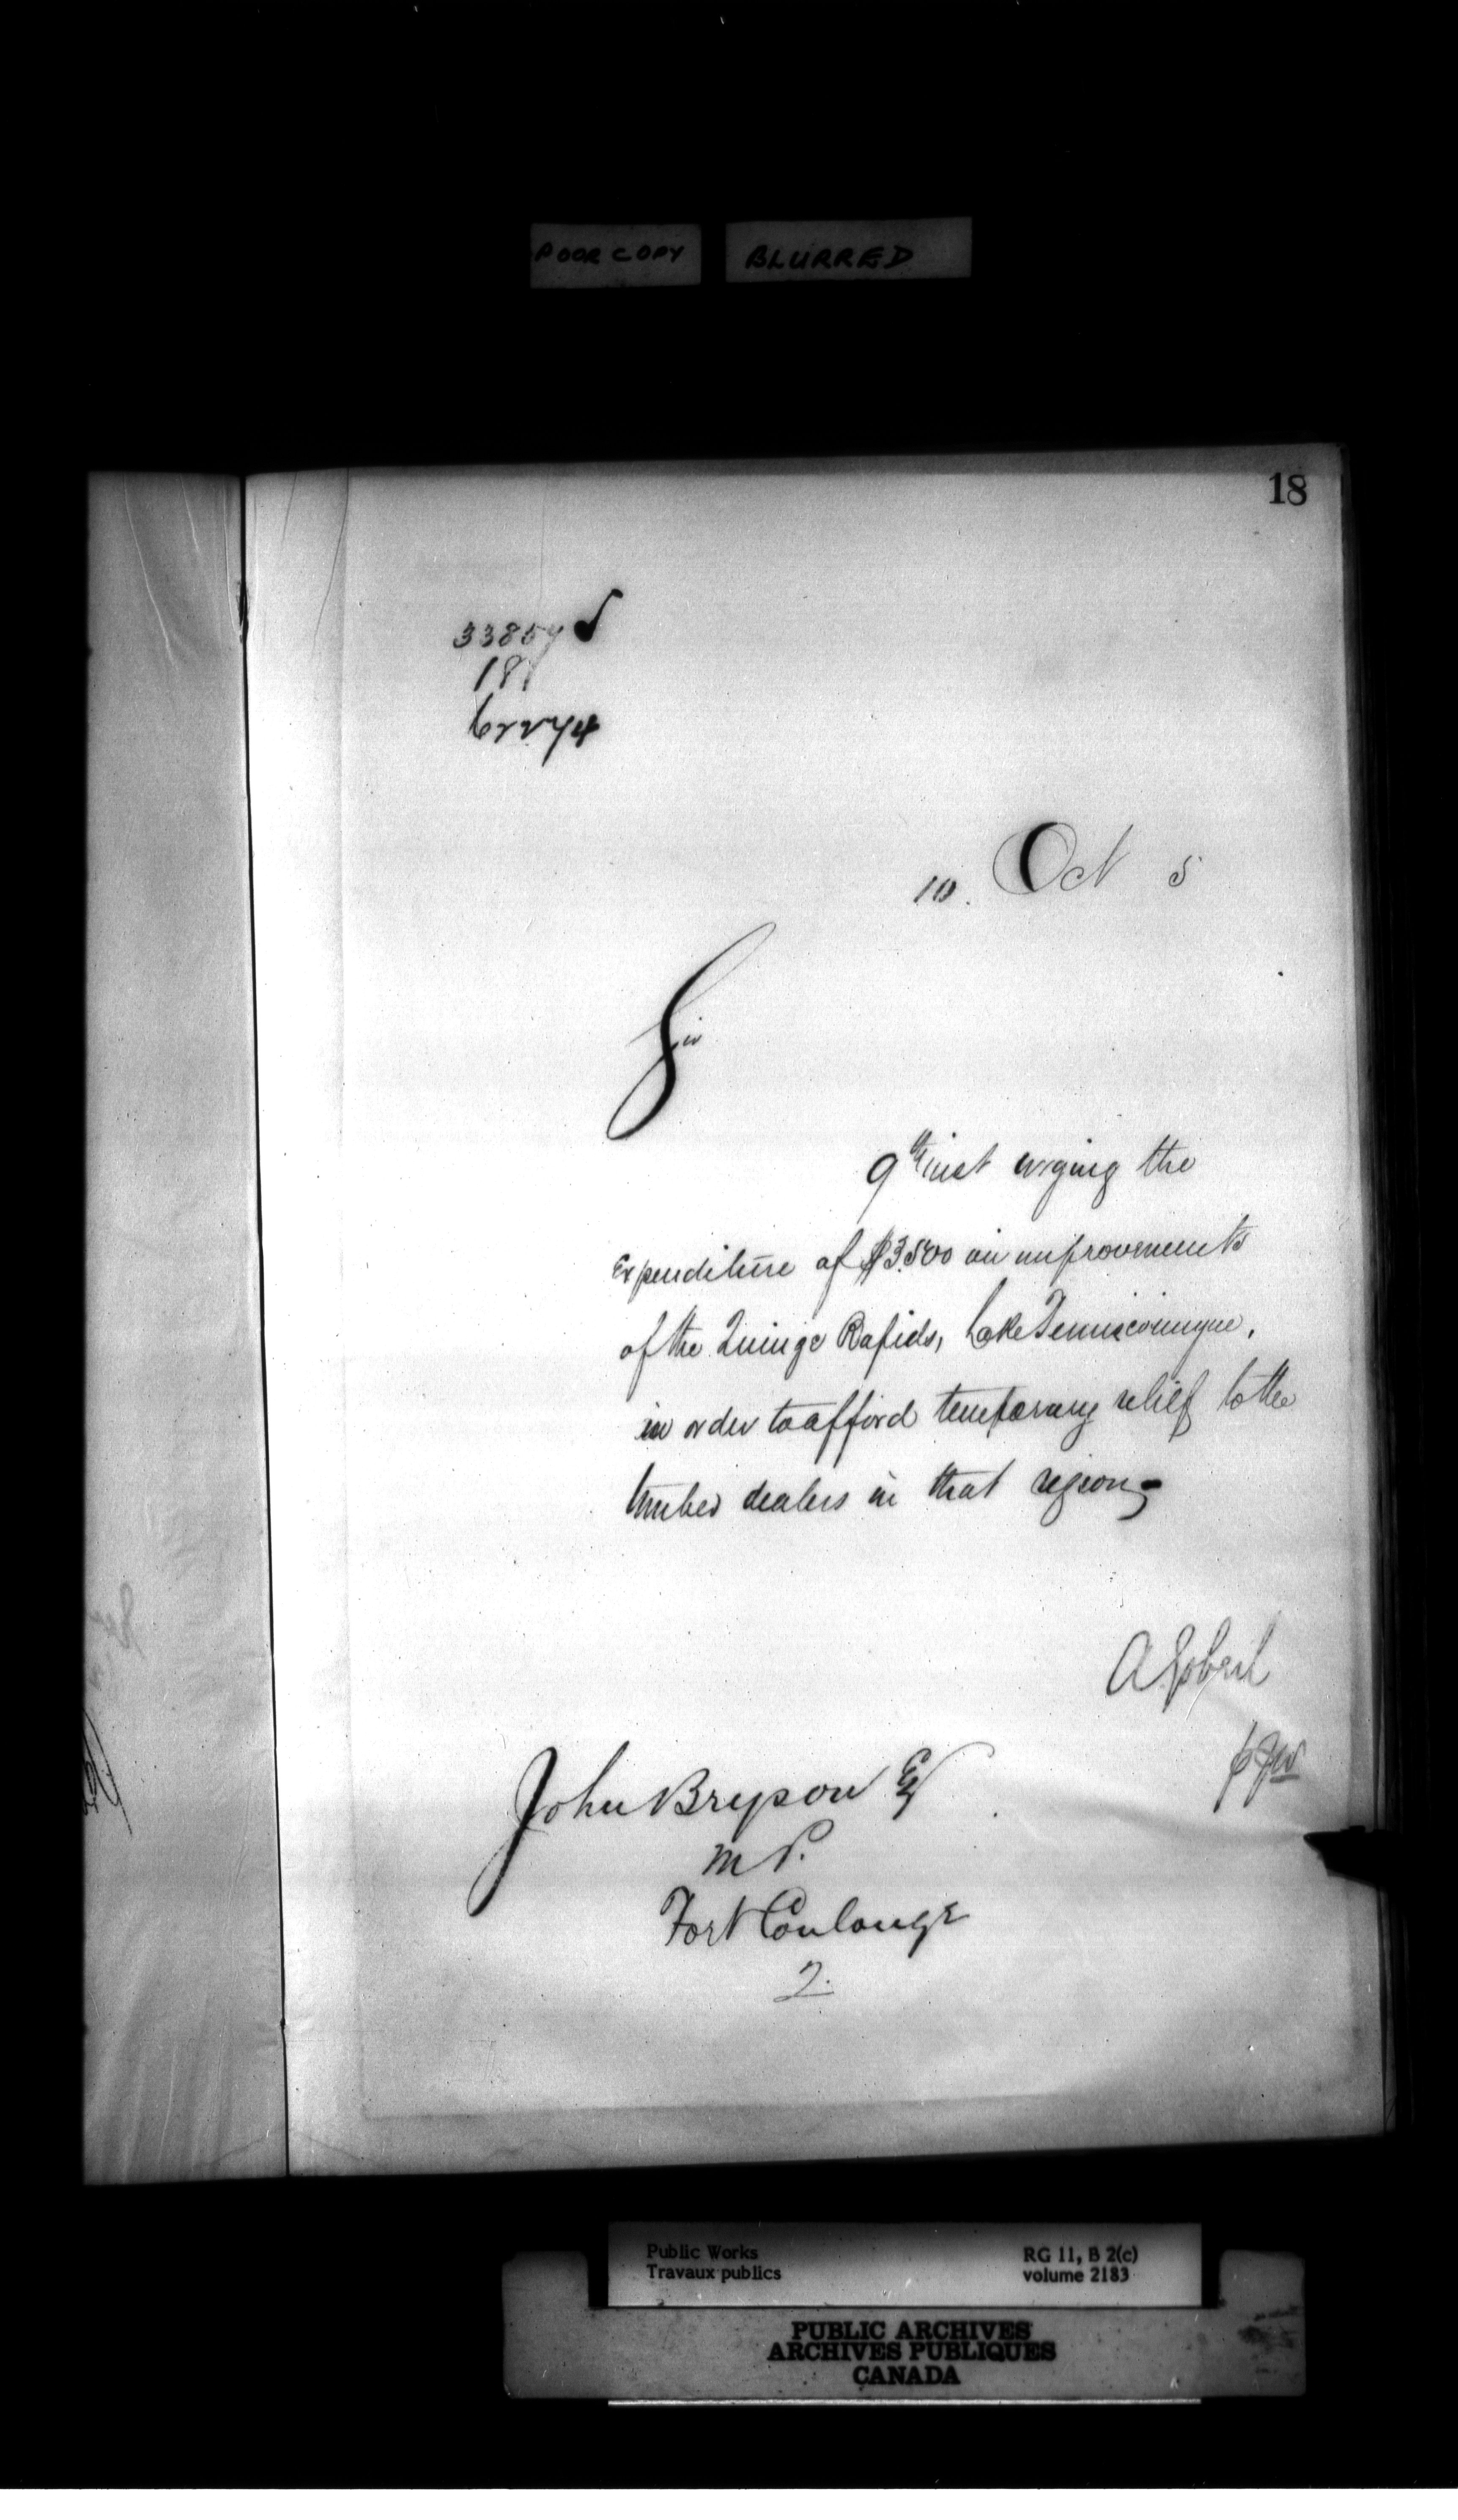 POOR COPY BLURRED
18
33857
18
62274
10. Oct 5
Sir
9th inst urging the
Expenditure of $3.500 on improvements
of the Quinze Rapids, Lake Temiscamingue,
in order to afford temporary relief to the
timber dealers in that region
A Gobeil
John Bryson Esq
M P.
Fort Coulonge
2.
Public Works RG 11, B 2(c)
Travaux publics volume 2183
PUBLIC ARCHIVES
ARCHIVES PUBLIQUES
CANADA